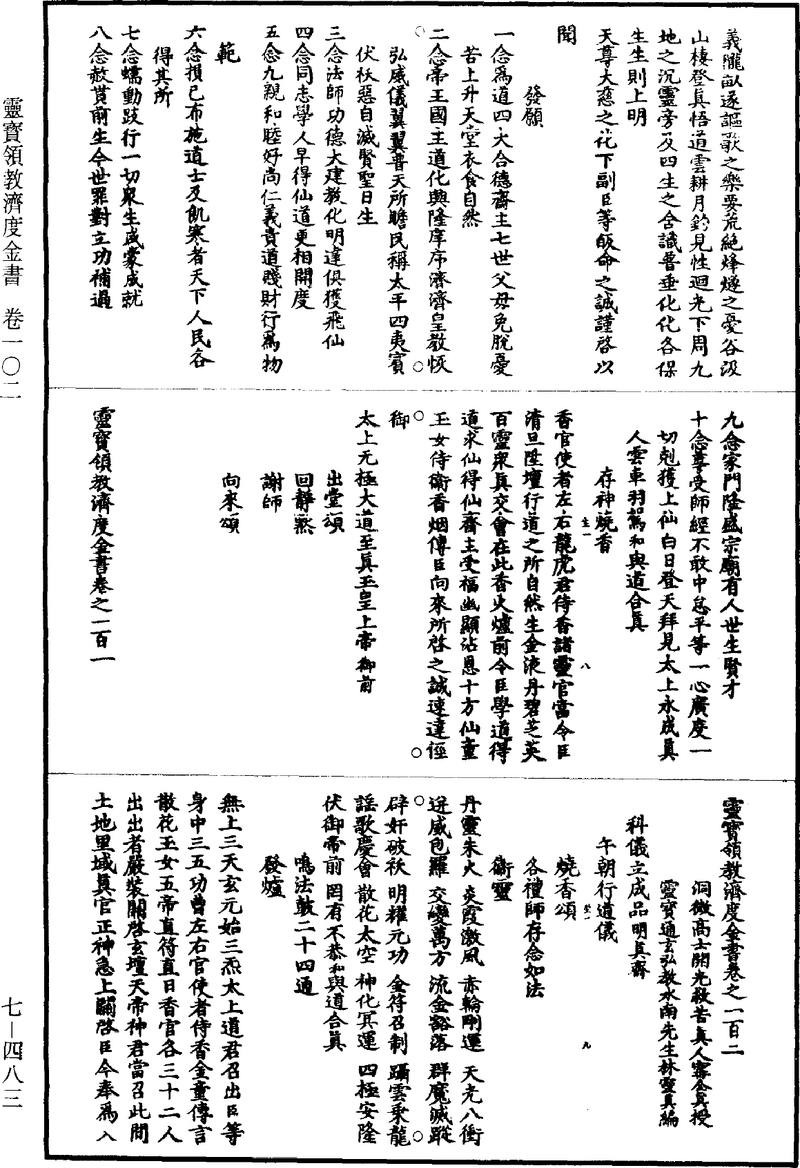 義隴畝逐謳歌之樂要荒絕烽燧之憂谷汲
山棲登真悟道雲耕月釣見性迴光下周九
地之沉靈旁及四生之含識普垂化化各保
生生則上明
天尊大慈之化下副臣等皈命之誠謹啓以
聞
發願
一念爲道四大合德齋主七世父母免脫憂
苦上升天堂衣食自然
二念帝王國主道化興隆庠序濟濟皇教恢
弘威儀翼翼普天所瞻民稱太平四夷賓
伏袄惡自滅賢聖日生
三念法師功德大建教化明達俱獲飛仙
四念同志學人早得仙道更相開度
五念九親和睦好尚仁義貴道賤財行爲物
範
六念損已布施道士及飢寒者天下人民各
得其所
七念蠕動跂行一切眾生咸蒙成就
八念赦貰前生今世罪對立功補過
九念家門隆盛宗廟有人世生賢才
十念尊受師經不敢中怠平等一心廣度一
切剋獲上仙白日登天拜見太上永成真
人雲車羽駕和與道合真
存神燒香
香官使者左右龍虎君侍香諸靈官當令臣
清旦陞壇行道之所自然生金液丹碧芝英
百靈眾真交會在此香火爐前令臣學道得
道求仙得仙齋主受福幽顯沾恩十方仙童
玉女侍衛香烟傳臣向來所啓之誠速達徑
御
太上无極大道至真玉皇上帝御前
出堂頌
回靜默
謝師
向來頌
靈寶領教濟度金書卷之一百一
靈寶領教濟度金書卷之一百二
洞微高士開光救苦真人甯全真授
靈寶通玄弘教水南先生林靈真編
科儀立成品明真齋
午朝行道儀
燒香頌
各禮師存念如法
衛靈
丹靈朱火 炎霞激風 赤輪剛運 天光八衝
迸威包羅 交變萬方 流金豁落 群魔滅蹤
辟奸破袄 明耀元功 金符召制 躡雲乘龍
謠歌慶會 散花太空 神化冥運 四極安隆
伏御帝前 罔有不恭 和與道合真
鳴法鼓二十四通
發爐
無上三天玄元始三炁太上道君召出臣等
身中三五功曹左右官使者侍香金童傳言
散花玉女五帝直符直日香官各三十二人
出出者嚴裝關啓玄壇天帝神君當召此間
土地里域真官正神急上關啓臣今奉爲入
靈寶領教濟度金書 卷一〇二
七—四八三